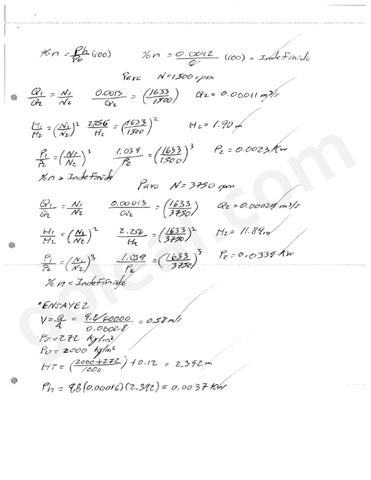 %n = Ph/Po (100) %n = 0.0012/0 (100) = Indefinido
Para N=1500 rpm
Q1/Q2 = N1/N2 0.0013/Q2 = (1633/1500) Q2 = 0.00011 m³/s
H1/H2 = (N1/N2)² 2.256/H2 = (1633/1500)² H2 = 1.90 m
P1/P2 = (N1/N2)³ 1.039/P2 = (1633/1500)³ P2 = 0.0023 Kw
%n = Indefinido
Para N=3750 rpm
Q1/Q2 = N1/N2 0.00013/Q2 = (1633/3750) Q2 = 0.00029 m³/s
H1/H2 = (N1/N2)² 2.256/H2 = (1633/3750)² H2 = 11.89 m
P1/P2 = (N1/N2)³ 1.039/P2 = (1633/3750)³ P2 = 0.0339 Kw
%n = Indefinido
*ENSAYE 2
V = Q/A = 9.8/60000/0.00028 = 0.58 m/s
Ps = 272 Kg/m²
PD = 2000 Kg/m²
HT = (2000+272/1000) + 0.12 = 2.392 m
Ph = 9.8 (0.00016)(2.392) = 0.0037 Kw